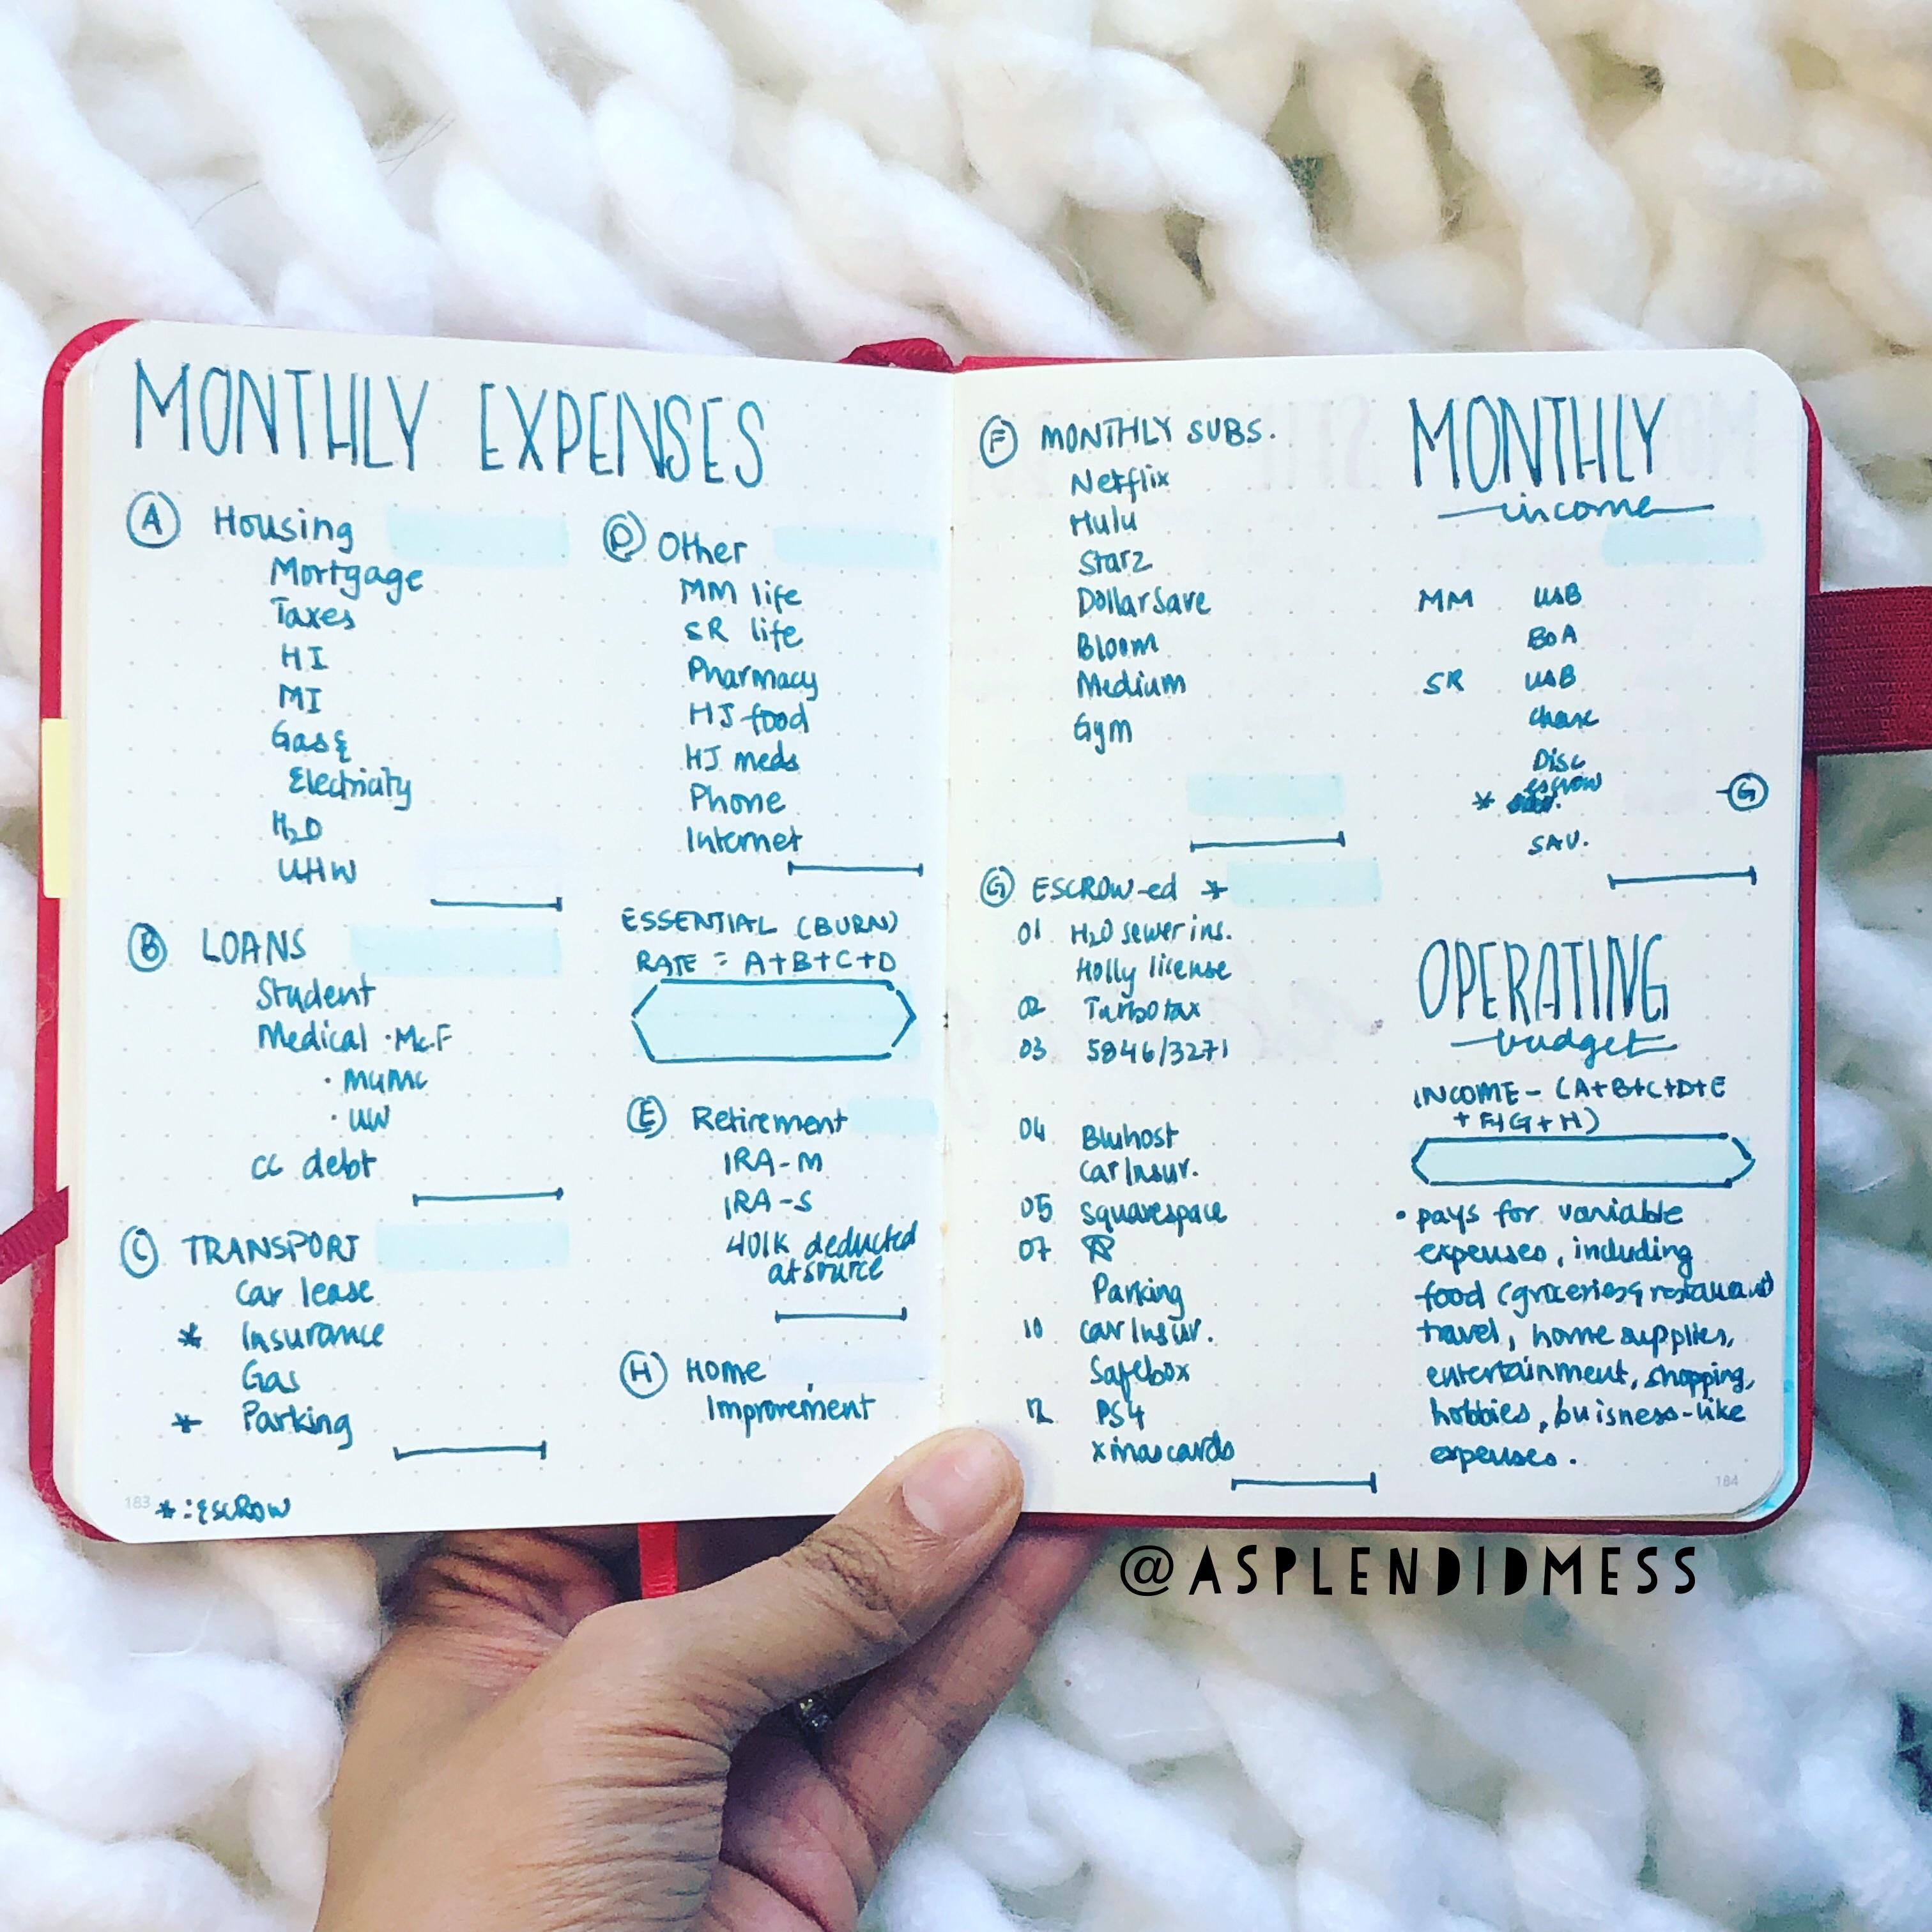 MONTHLY EXPENSES
A Housing
Mortgage
Taxes
HI
MI
Gas &
Electricity
H2O
UHW
B LOANS
Student
Medical · McF
· MUMC
· UW
CC debt
C TRANSPORT
Car lease
* Insurance
Gas
* Parking
163 * : ESCROW
D Other
MM life
SR life
Pharmacy
HJ food
HJ meds
Phone
Internet
ESSENTIAL (BURN)
RATE = A+B+C+D
E Retirement
IRA-M
IRA-S
401K deducted
at source
H Home
Improvement
F MONTHLY SUBS.
Netflix
Hulu
Starz
DollarSave
Bloom
Medium
Gym
G ESCROW-ed *
01 H2O sewer ins.
Holly license
02 Turbotax
03 5846/3271
04 Bluhost
Car Insur.
05 Squarespace
07
Parking
10 Car Insur.
Safebox
12 PS4
xmas cards
MONTHLY
income
MM USB
BOA
SR USB
Chase
Disc
* escrow -G
SAV.
OPERATING
budget
INCOME - (A+B+C+D+E
+F+G+H)
• pays for variable
expenses, including
food (groceries & restaurant)
travel, home supplies,
entertainment, shopping,
hobbies, buisness-like
expenses.
164
@ASPLENDIDMESS